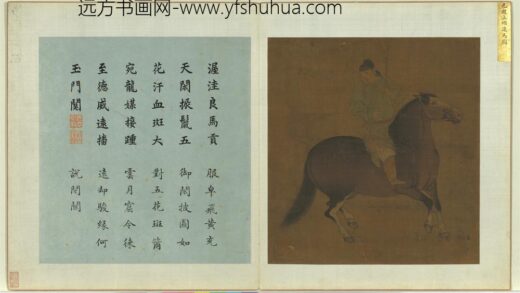 远方书画网-www.yfshuhua.com
渥洼良馬貢
天閑振鬣五
花汗血斑大
宛龍媒接踵
至德威遠播
玉門關
服皁飛黃充
御閑披圖如
對五花斑
雲月窟今徠
遠却駿緣何
說閉關